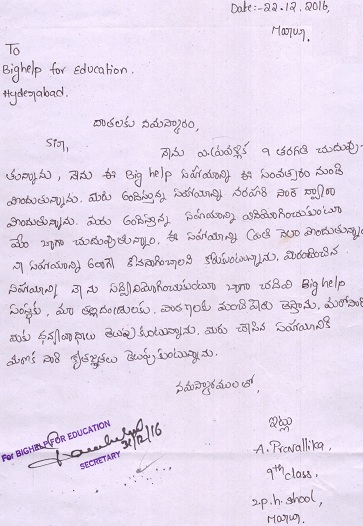 Date:- 22.12.2016,
Marur.
To
Bighelp for Education.
Hyderabad.
దాతలకు నమస్కారం,
Sir,
నేను 9 తరగతి చదువు-
తున్నాను, నేను ఈ Big help సహాయాన్ని ఈ సంవత్సరం నుండి
పొందుతున్నాను. మీరు అందిస్తున్న సహాయాన్ని ద్వారా
పొందుతున్నాను. మీరు అందిస్తున్న సహాయాన్ని వినియోగించుకుంటూ
నేను బాగా చదువుతున్నాను. ఈ సహాయాన్ని ప్రతి నెలా పొందుతున్నాను
నా సహాయాన్ని ఇలాగే కొనసాగించాలని కోరుకుంటున్నాను. మీరందించిన
సహాయాన్ని నేను సద్వినియోగించుకుంటూ బాగా చదివి Big help
సంస్థకు, మా తల్లిదండ్రులకు, మంచి పేరు తెస్తాను. మరోసారి
మీకు ధన్యవాదాలు తెలుపుకుంటున్నాను. మీరు చేసిన సహాయానికి
మరొక సారి కృతజ్ఞతలు తెలుపుకుంటున్నాను.
నమస్కారములతో,
ఇట్లు
A. Pravallika.
9th class.
z.p.h. school,
Marur.
For BIGHELP FOR EDUCATION
31/12/16
SECRETARY